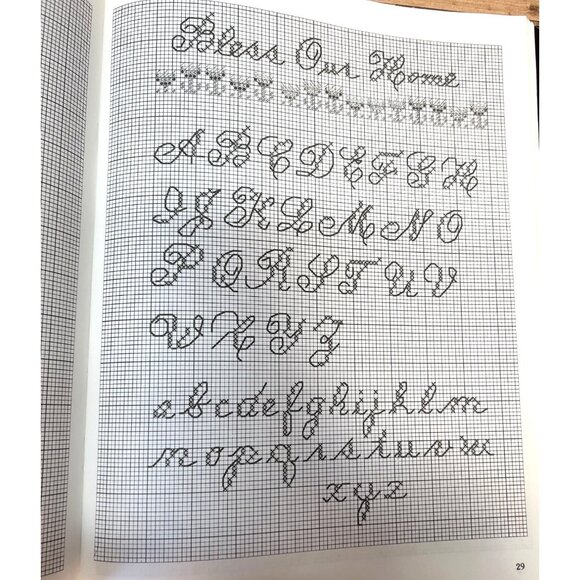 Bless Our Home
A B C D E F G H
I J K L M N O
P Q R S T U V
W X Y Z
a b c d e f g h i j k l m
n o p q r s t u v w
x y z
29